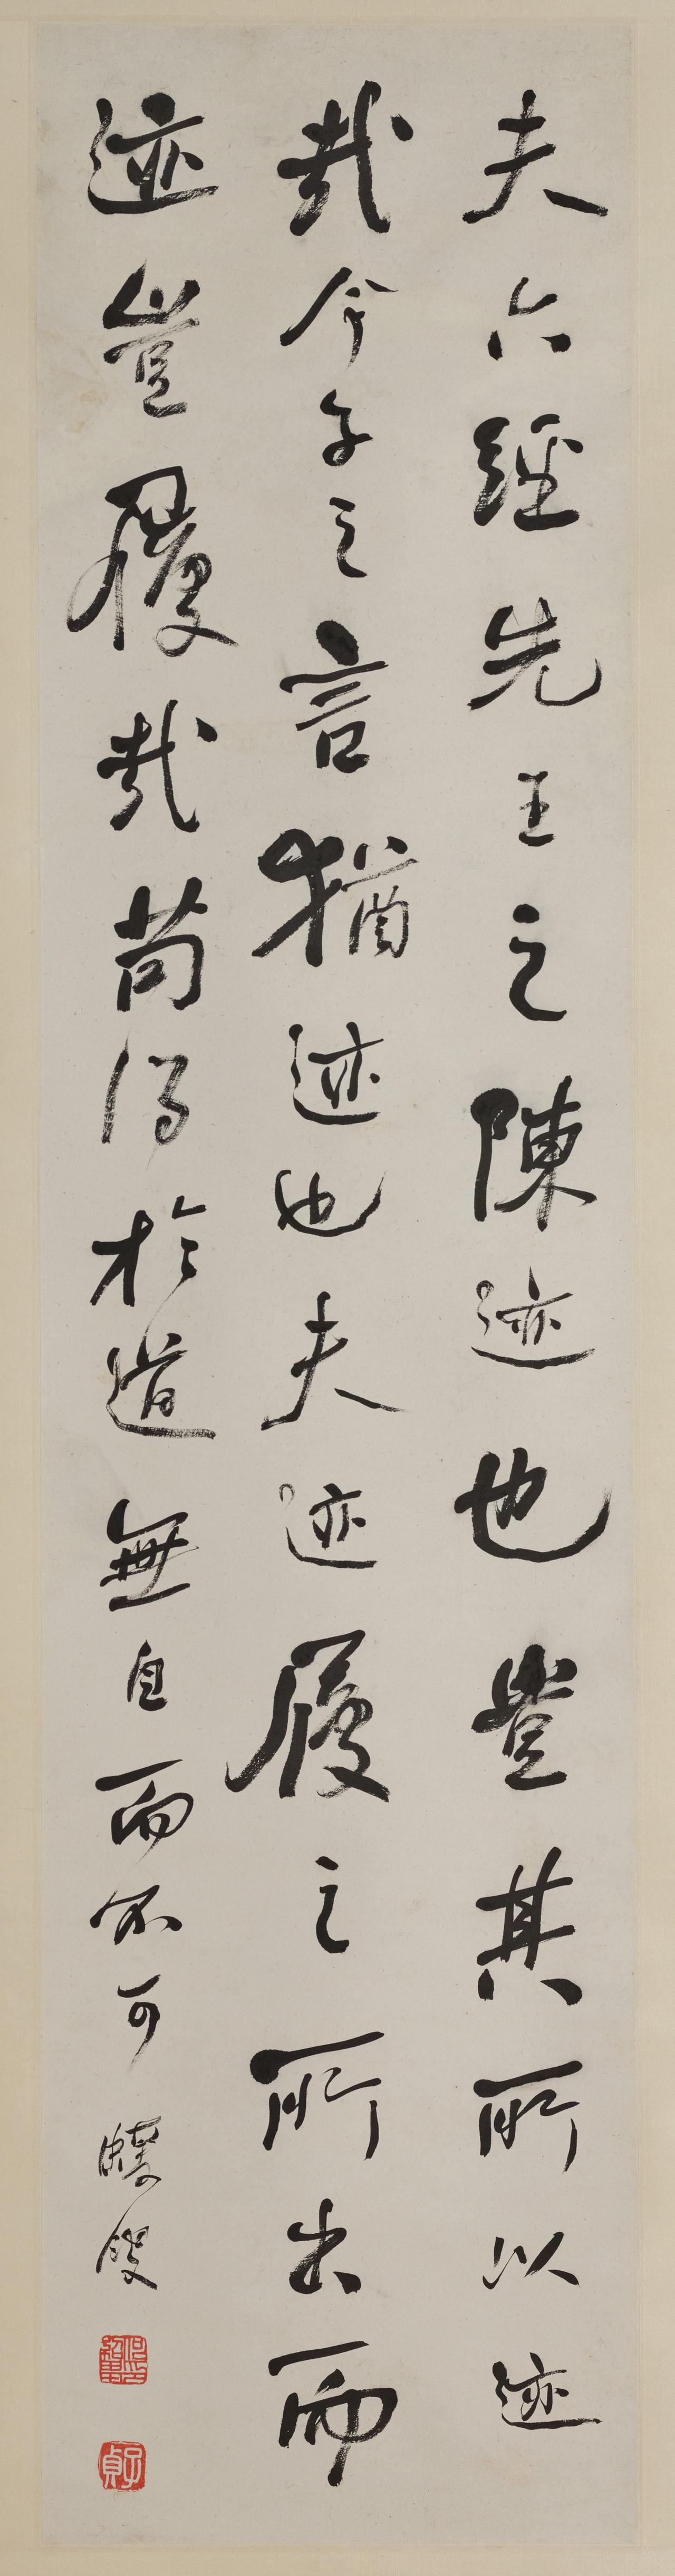 夫六經先王之陳迹也豈其所以迹
哉今子之言猶迹也夫迹履之所出而
迹豈履哉苟得於道無自而不可
蝯叟
子貞